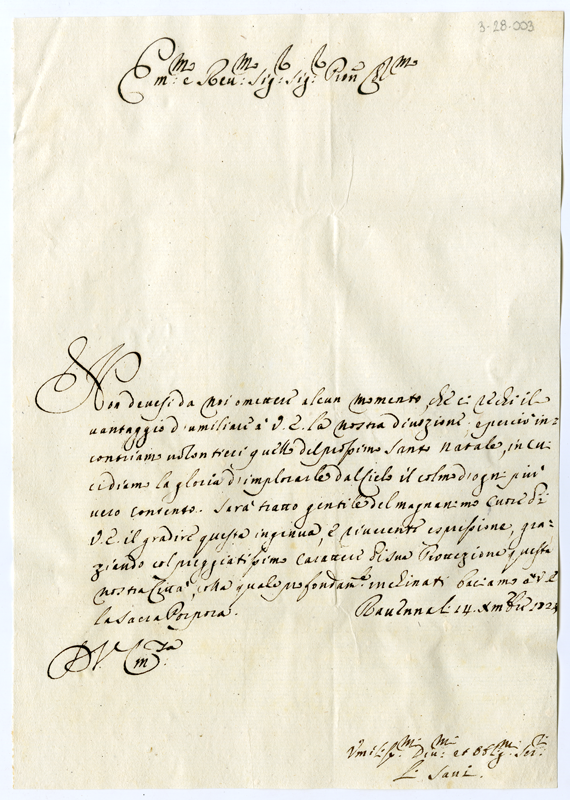 3-28-003
Em:mo e Reu:mo Sig:r Sig:r Pron Col:mo
Non deuesi da noi omettere alcun momento, che ci rechi il
vantaggio d'umiliare à V. E. la nostra diuozione; e perciò in=
contriamo volontieri quello del prossimo Santo Natale, in cui
la gloria d'implorarle dal Cielo il colmo d'ogni più
uero contento. Sarà tratto gentile del magnanimo Cuore di
V. E. il gradire questa ingenua, e riuerente espressione, gra=
ziando col preggiatissimo Carattere di sua Protezione questa
nostra Città, colla quale profondam:te inchinati baciamo à V. E.
la Sacra Porpora. Rauenna li 14 Xmbre
D. V. Em:za
Vmiliss:mi Diu:mi et Obblig:mi Ser:ri
Li Savi